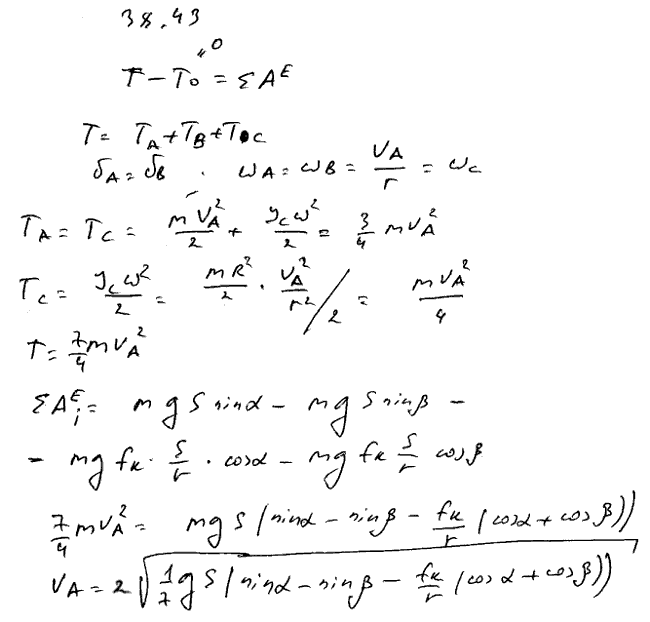 38.43
T - T₀ = ΣAᴱ
"0
T = T_A + T_B + T_C
δ_A = δ_B . ω_A = ω_B = V_A/r = ω_C
T_A = T_C = mV_A²/2 + J_Cω²/2 = 3/4 mV_A²
T_C = J_Cω²/2 = mR²/2 · V_A²/r² / 2 = mV_A²/4
T = 7/4 mV_A²
ΣA_iᴱ = mgS sinα - mgS sinβ -
- mg fк · S/r · cosα - mg fк S/r cosβ
7/4 mV_A² = mgS(sinα - sinβ - fк/r (cosα + cosβ))
V_A = 2√(1/7 gS(sinα - sinβ - fк/r (cosα + cosβ)))